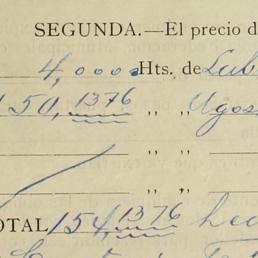 SEGUNDA.—El precio d
4,0000 Hts. de Lab
150,1376 " " Agos
" "
TOTAL 154,1376 hec